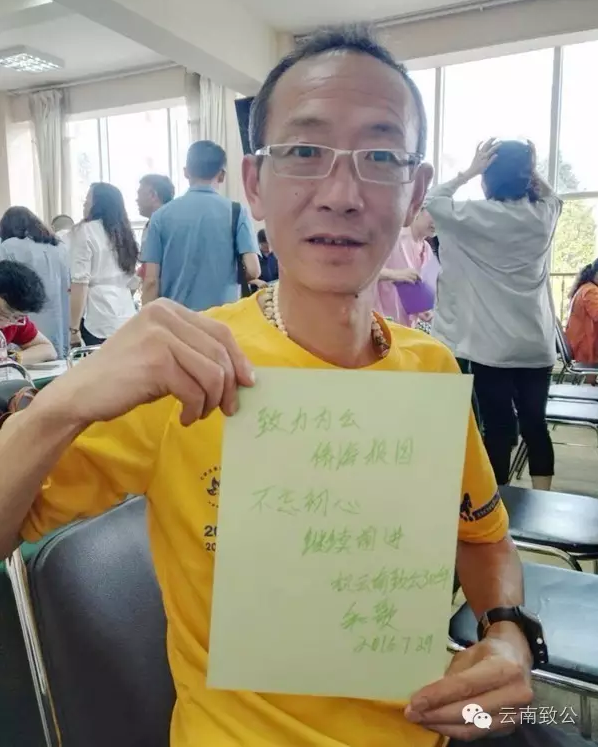 致力为公
侨海报国
不忘初心
继续前进
祝云南致公30年
和歌
2016.7.29
20
20
云南致公